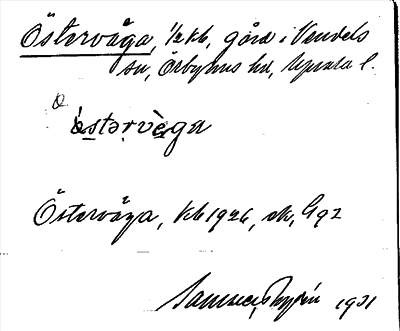 Östervåga, 1/2 kb, gård i Vendels
sn, Örbyhus hd, Uppsala l.
östərvèga
Östervåga, kb 1926, sk, G 92
1931